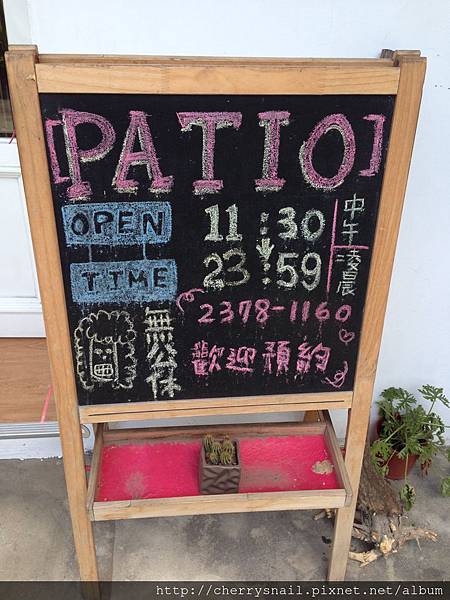 [PATIO]
OPEN TIME
11:30 中午
23:59 凌晨
2378-1160
無公休
歡迎預約
http://cherrysnail.pixnet.net/album